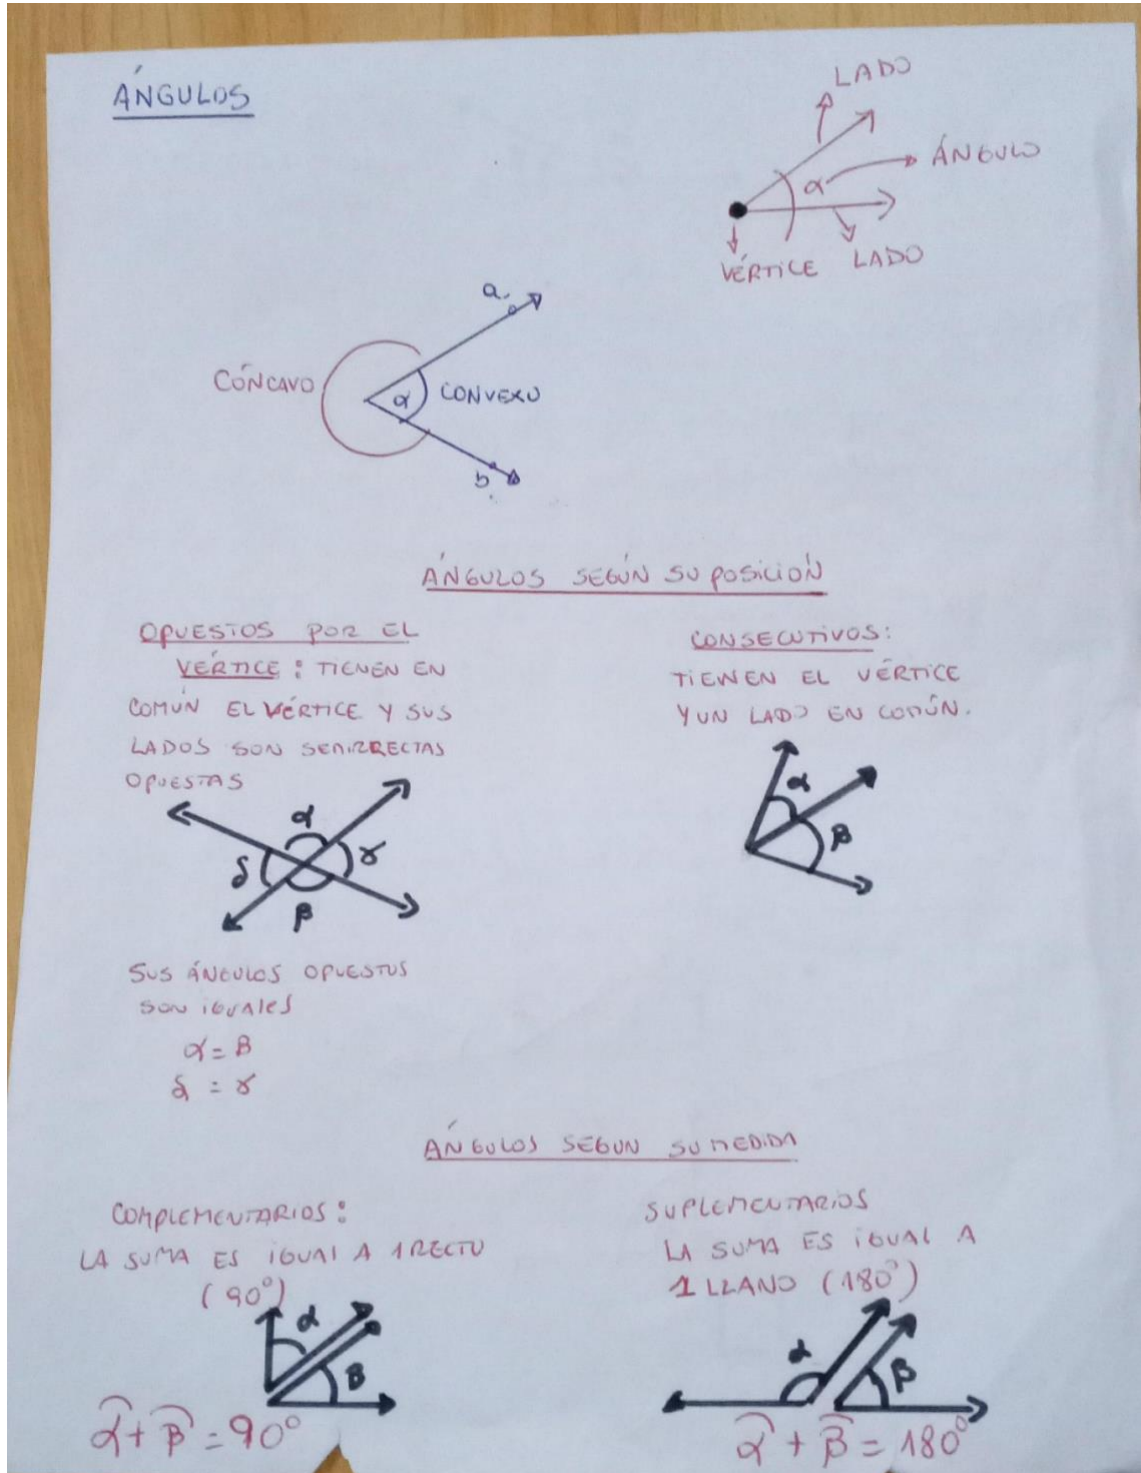 ÁNGULOS
LADO
α
ÁNGULO
VÉRTICE LADO
a
CÓNCAVO
α
CONVEXO
b
ÁNGULOS SEGÚN SU POSICIÓN
OPUESTOS POR EL
VÉRTICE: TIENEN EN
COMÚN EL VÉRTICE Y SUS
LADOS SON SEMIRRECTAS
OPUESTAS
α
δ
γ
β
SUS ÁNGULOS OPUESTOS
SON IGUALES
α = β
δ = γ
CONSECUTIVOS:
TIENEN EL VÉRTICE
Y UN LADO EN COMÚN.
α
β
ÁNGULOS SEGUN SU MEDIDA
COMPLEMENTARIOS:
LA SUMA ES IGUAL A 1 RECTO
(90°)
α
β
α̂ + β̂ = 90°
SUPLEMENTARIOS
LA SUMA ES IGUAL A
1 LLANO (180°)
α
β
α̂ + β̂ = 180°